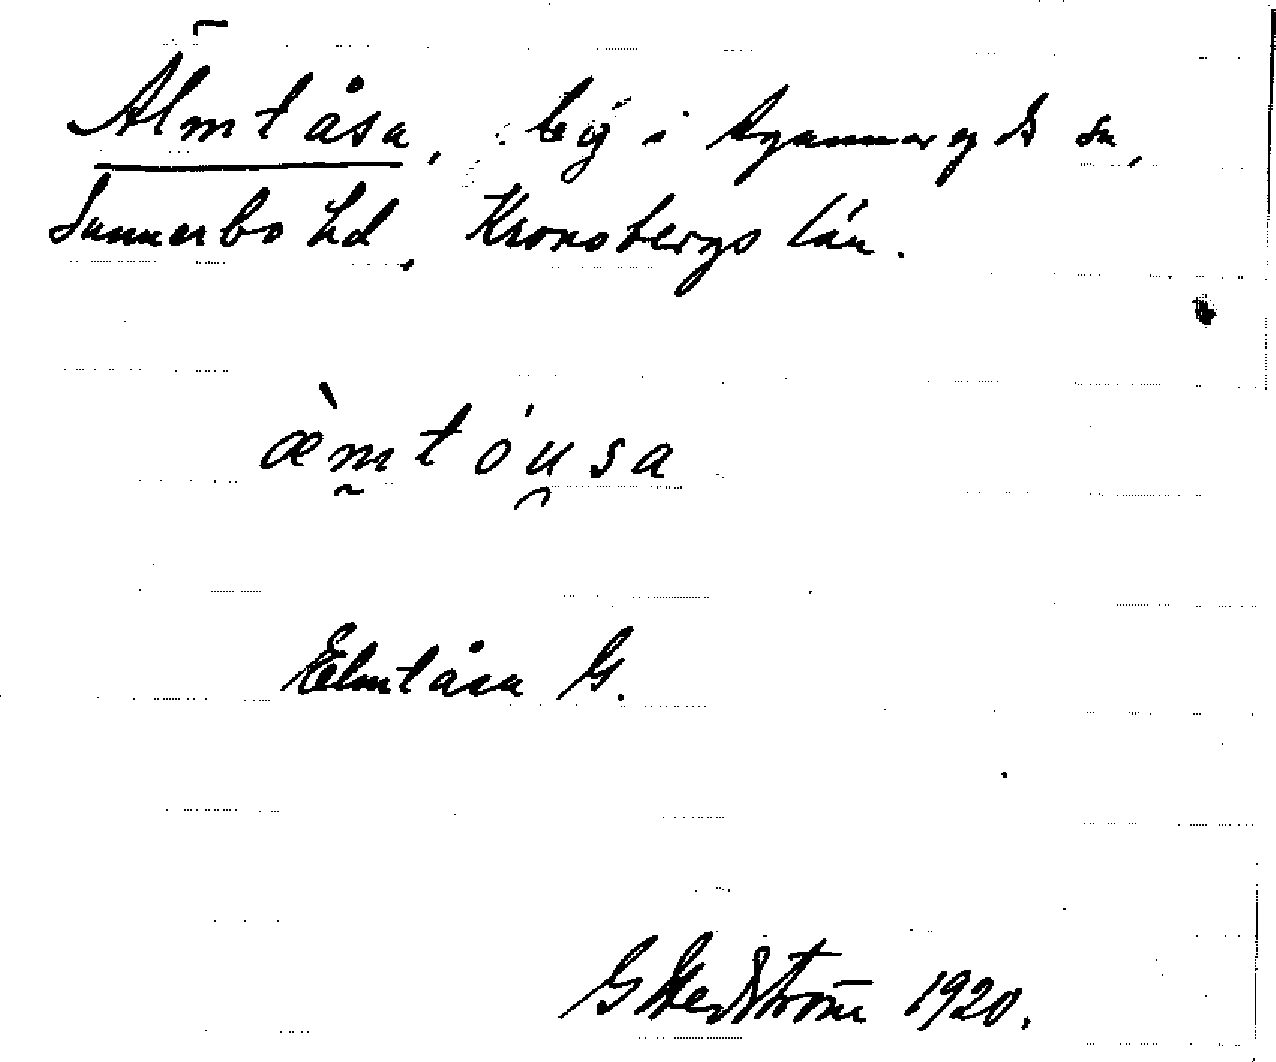 Älmtåsa, by i Agunnaryds sn,
Sunnerbo hd, Kronobergs län.
æ̀m̰tóu̯sa
Elmtåsa G.
G Hedström 1920.